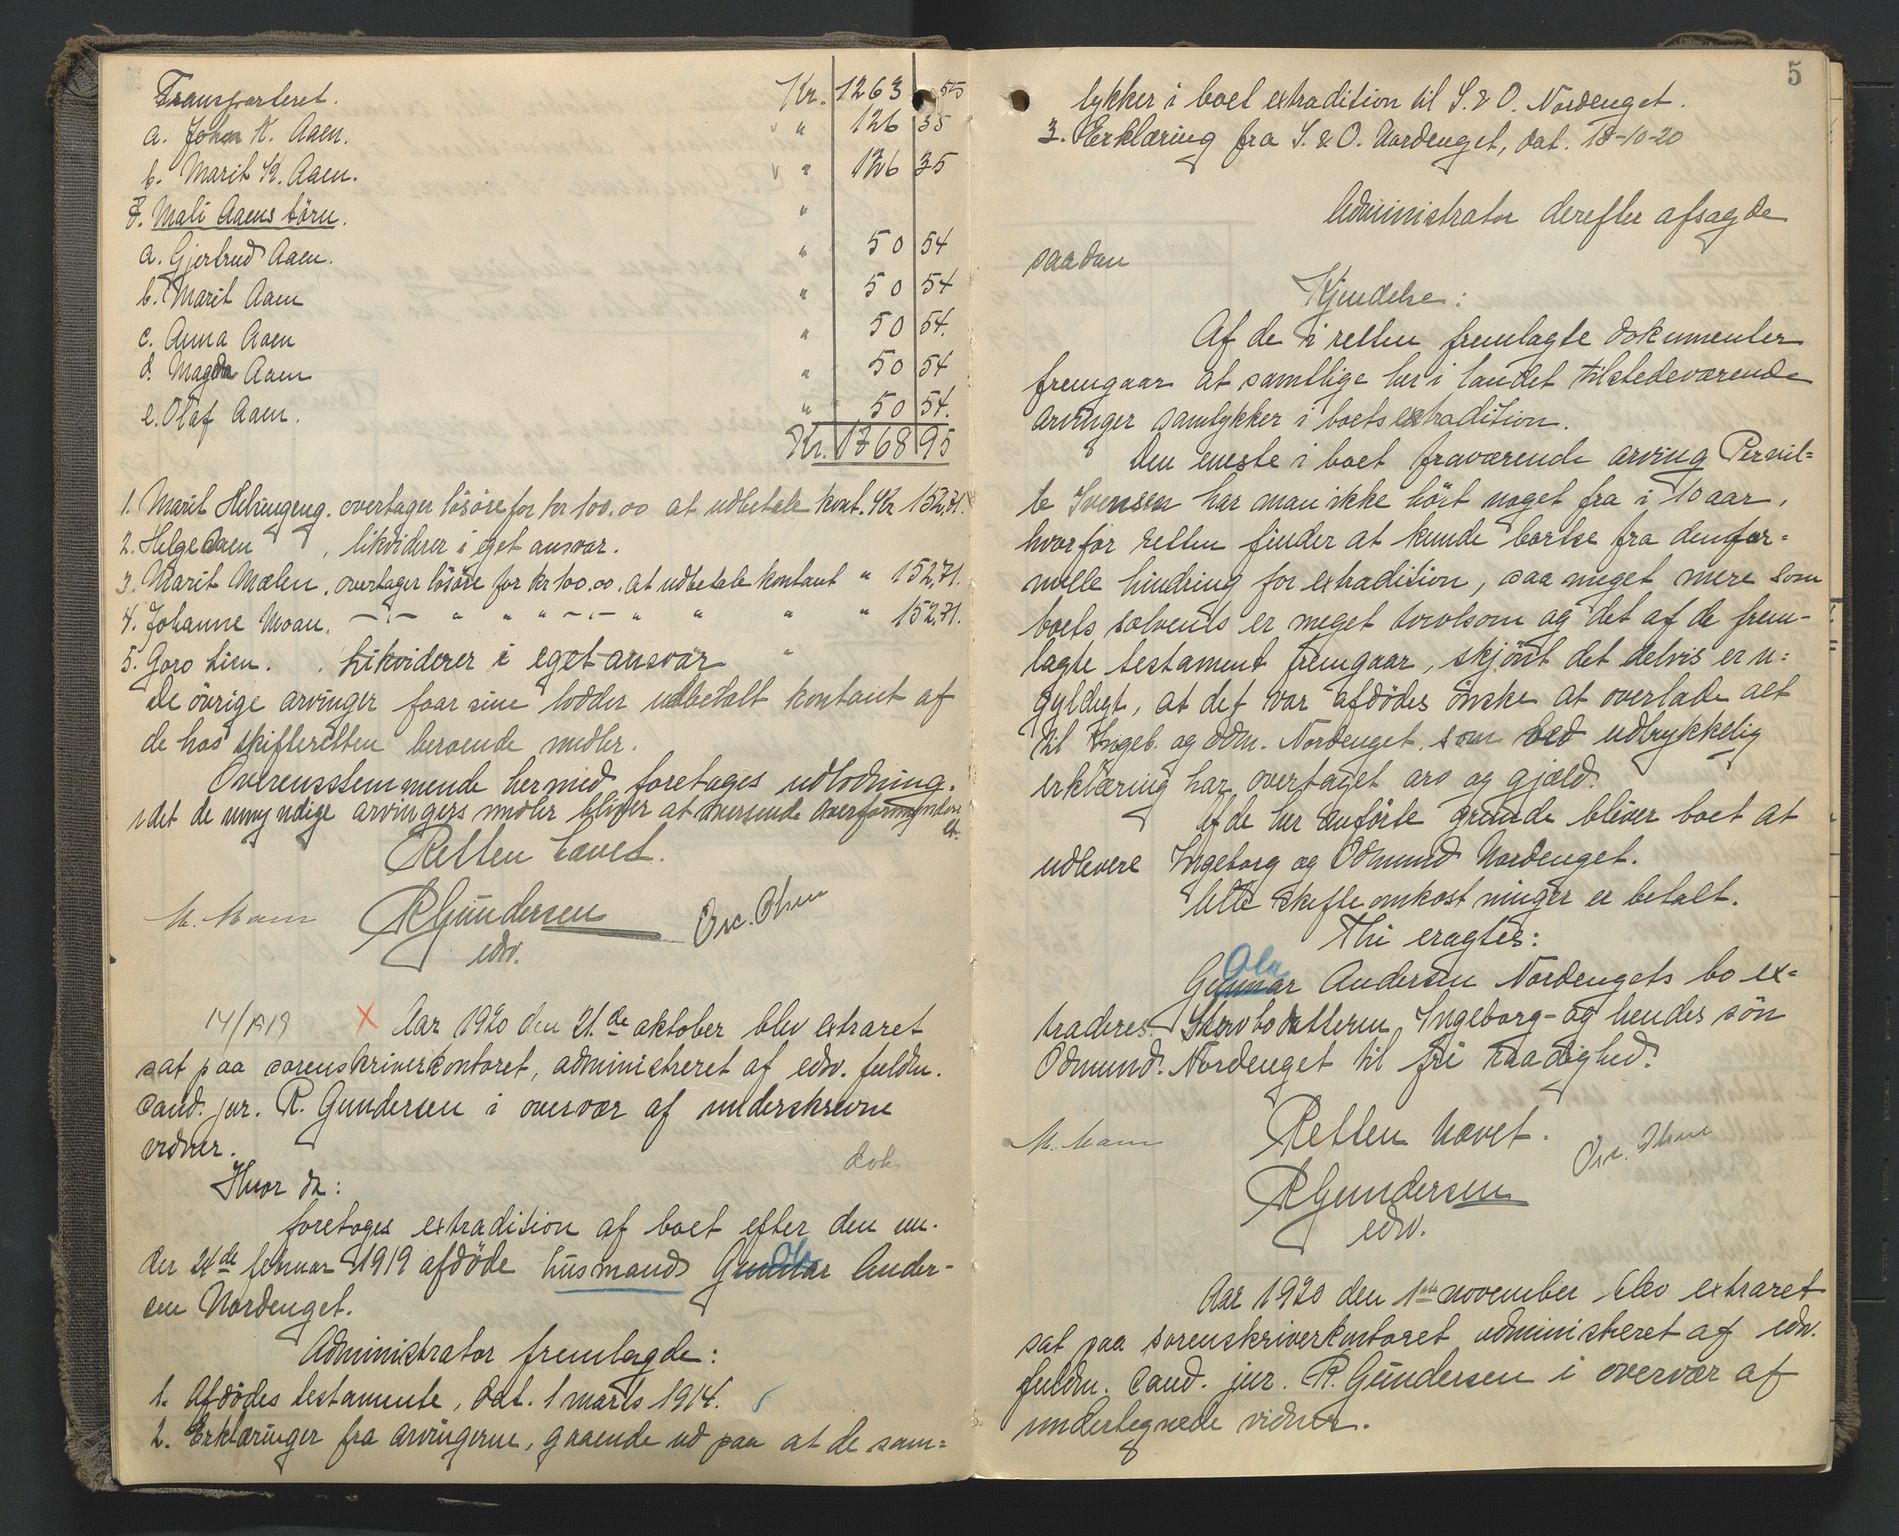 Transporteret. Kr. 1263 55
a. John K. Aaen. " 126 35
b. Marit K. Aaen. " 126 35
7. Mali Aaens börn. "
a. Gjertrud Aaen. " 50 54
b. Marit Aaen " 50 54
c. Anna Aaen " 50 54.
d. Magda Aaen " 50 54
e. Olaf Aaen. " 50 54.
Kr. 1768 95
1. Marit Helsingeng. overtager lösöre for kr 100.00 at udbetale kont. Kr 152,71.
2. Helge Aaen , likviderer i eget ansvar.
3. Marit Mælen. overtager lösöre for kr 100.00. at udbetale kontant " 152,71.
4. Johanne Moan. -"- " " " -"- " " " " 152,71.
5. Goro Lien. . Likviderer i eget ansvar "
De övrige arvinger faar sine lodder udbetalt kontant af
de hos skifteretten beroende midler.
Overensstemmende hermed foretages udlodning.
idet de umyndige arvingers midler bliver at oversende Overformynderi
et.
Retten hævet.
M. Moen RGundersen Osc. Olsen
edv.
14/1919 X Aar 1920 den 21.de oktober blev extraret
sat paa sorenskriverkontoret, administreret af edv. fuldm.
cand. jur. R. Gundersen i overvær af underskrevne
vidner.
dok.
Hvor da:
foretoges extradition af boet efter den un-
der 24de februar 1919 afdöde husmand Gunnar Ola Ander-
sen Nordenget.
Administrator fremlagde:
1. Afdödes testamente, dat. 1 marts 1914.
2. Erklæringer fra arvingerne, gaaende ud paa at de sam=
5
tykker i boet extradition til I. & O. Nordenget.
3. Erklæring fra I. & O. Nordenget, dat. 18-10-20
Administrator derefter afsagde
saadan
Kjendelse:
Af de i retten fremlagte dokumenter
fremgaar at samtlige her i landet tilstedeværende
arvinger samtykker i boets extradition.
Den eneste i boet fraværende arving Pernil=
le Svensen har man ikke hört noget fra i 10 aar,
hvorfor retten finder at kunde bortse fra den for=
melle hindring for extradition, saa meget mere som
boets solvents er meget tvilsom og det af de frem-
lagte testament fremgaar, skjönt det delvis er u=
gyldigt, at det var afdödes önske at overlade alt
til Ingeb. og Odm. Nordenget. som ved udtrykkelig
erklæring har overtaget arv og gjæld.
Af de her anförte grunde bliver boet at
udlevere Ingeborg og Odmund Nordenget.
Alle skifteomkostninger er betalt.
Thi eragtes:
Gunnar Ola Andersen Nordengets bo ex=
traderes Stervbodatteren Ingeborg- og hendes sön
Odmund. Nordenget til fri raadighed.
M. Moen Retten hævet. Osc. Olsen
RGundersen
edv.
Aar 1920 den 1ste november blev extraret
sat paa sorenskriverkontoret administreret af edv.
fuldm. cand. jur. R. Gundersen i overvær af
undertegnede vidner.